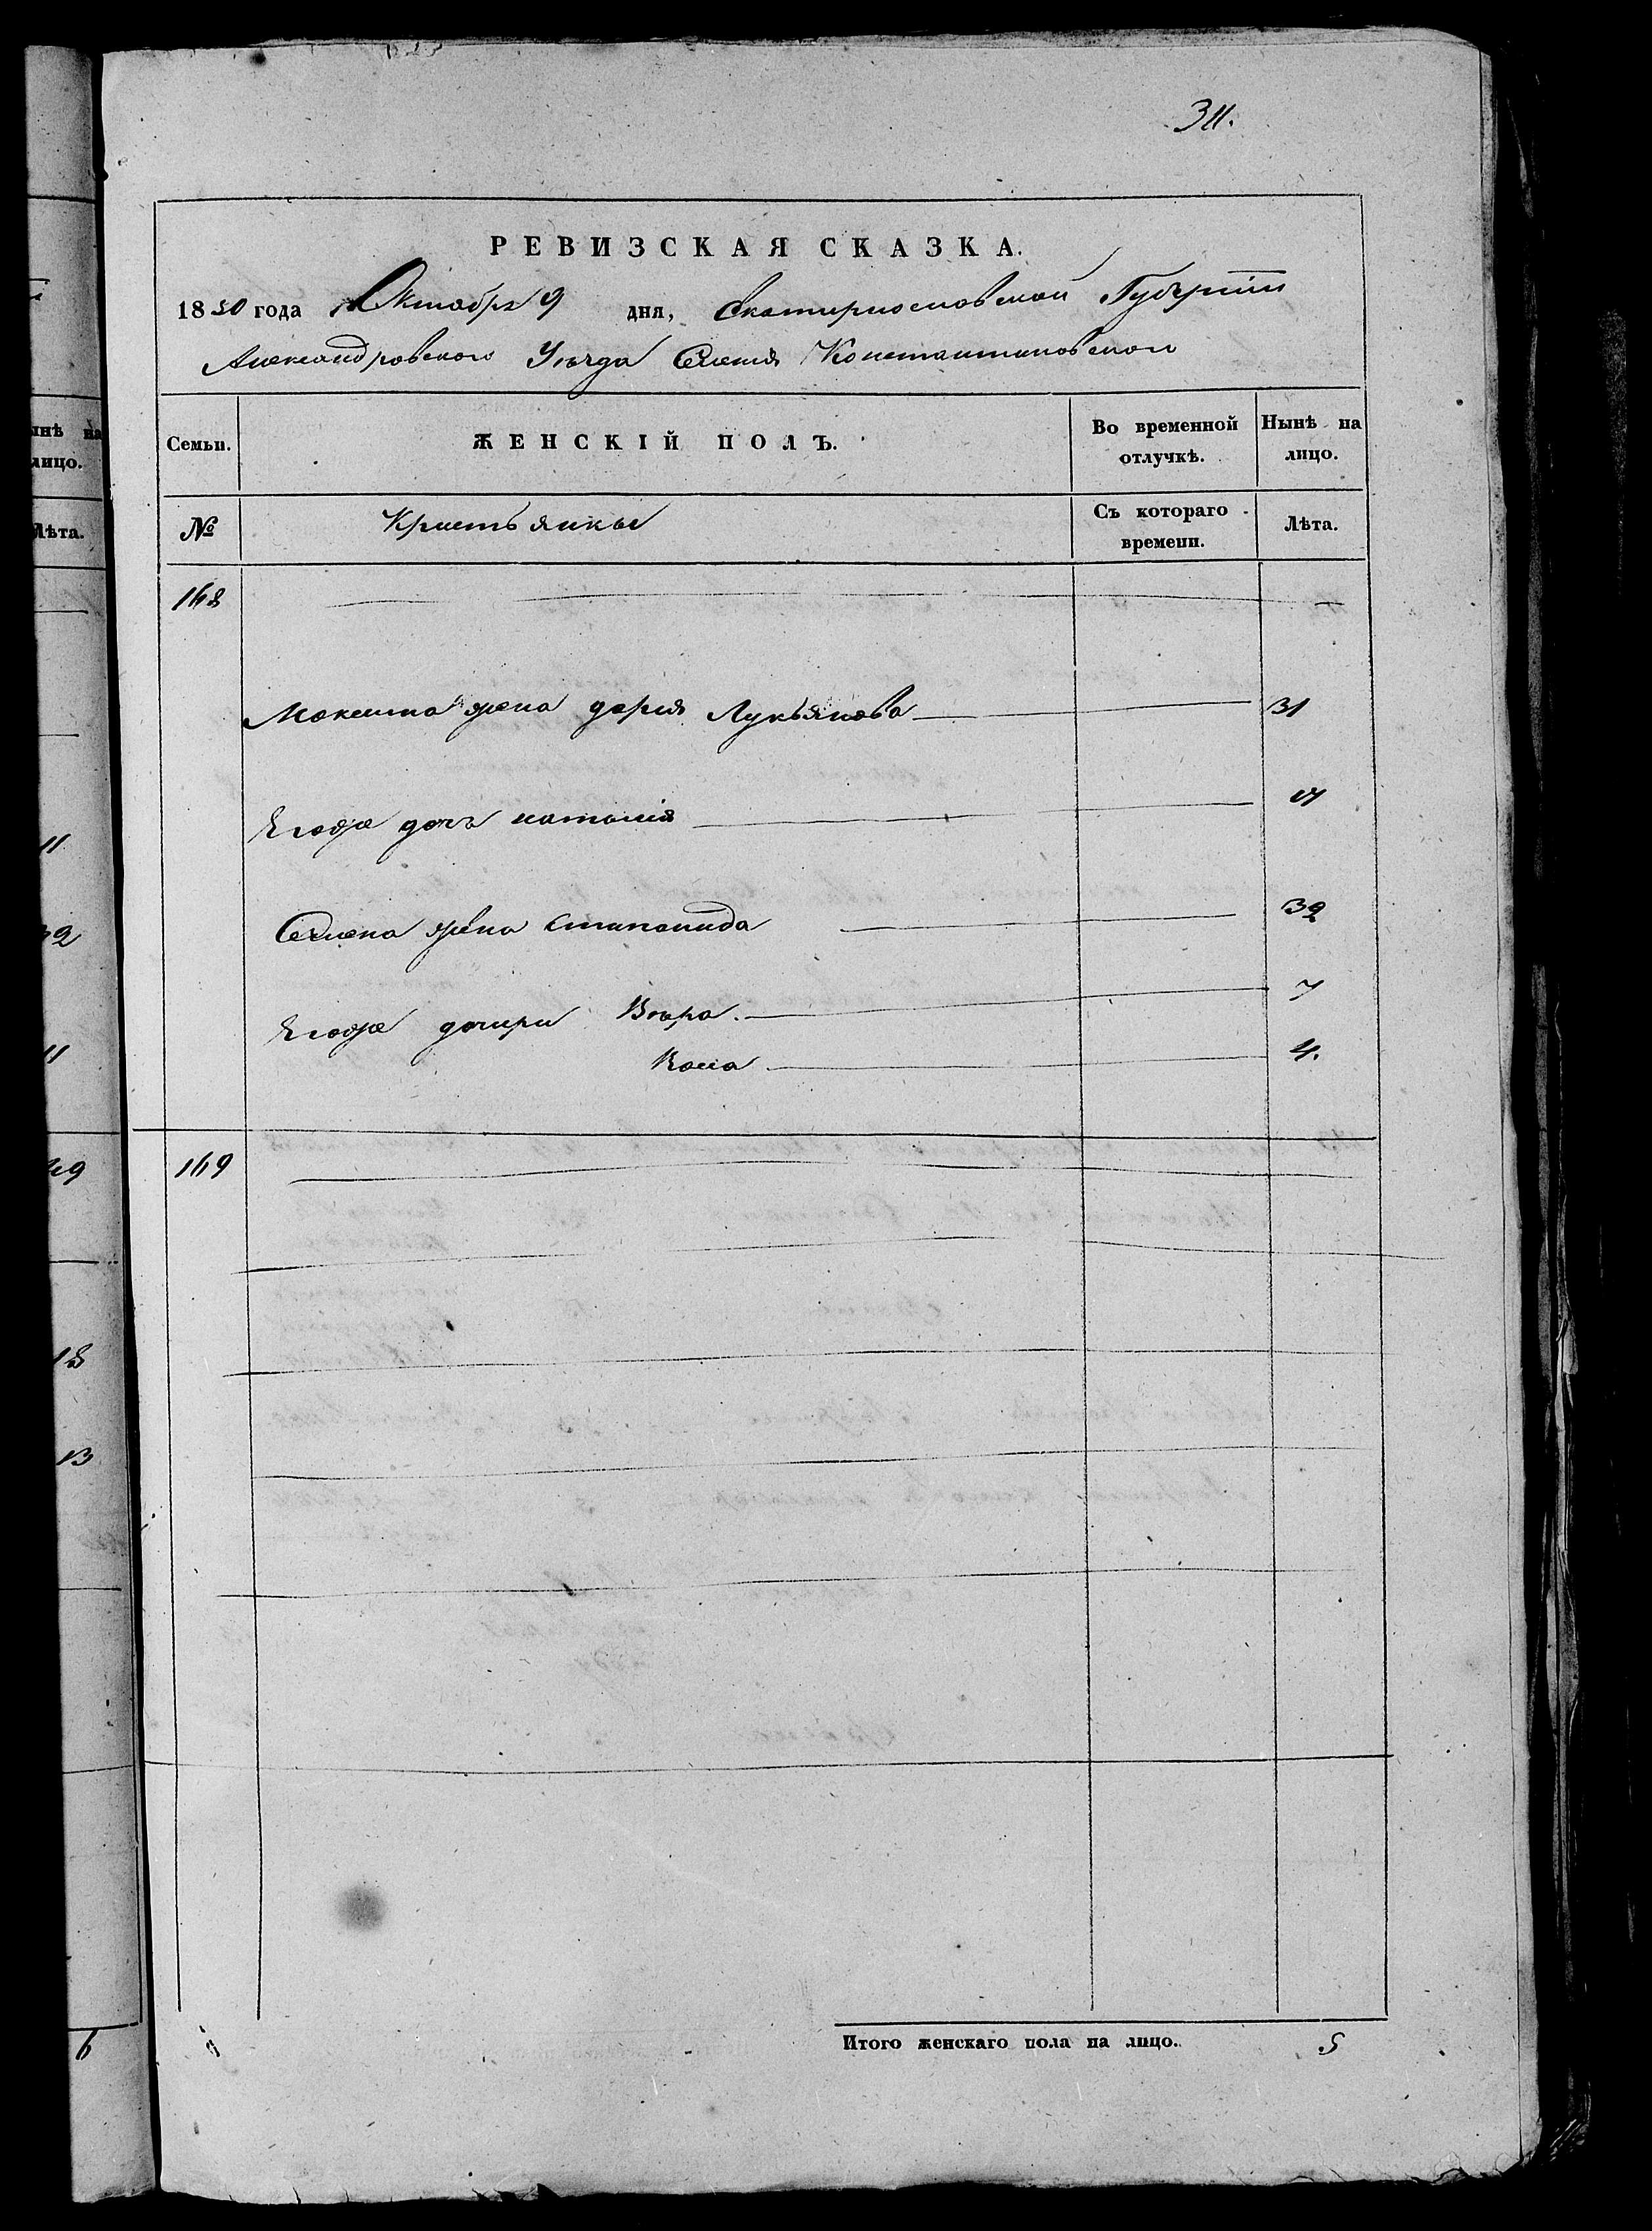 311.
РЕВИЗСКАЯ СКАЗКА.
1850 года Октября 9 дня, Екатеринославской Губернии
Александровского Уезда Селения Константиновского
Семьи. ЖЕНСКІЙ ПОЛЪ. Во временной отлучкѣ. Нынѣ на лицо.
№ Крестьянкы Съ котораго времени. Лѣта.
168
Максима жена дария Лукьянова 31
Егоже дочь наталия
Семена жена Степанида 32
Егоже дочери Вера. 7
4.
169
Итого женскаго пола на лицо. 5
ынѣ на
лицо.
Лѣта.
11
11
49
18
13
6